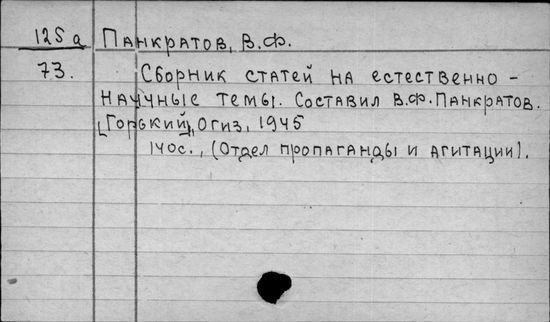 125а Панкратов, В.Ф.
73. Сборник статей на естественно-
научные темы. Составил В.Ф. Панкратов.
[Горький], Огиз, 1945
140с., (Отдел пропаганды и агитации).